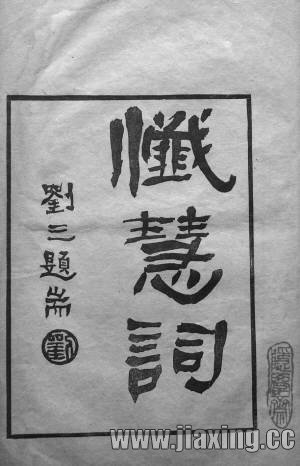 懺慧詞
劉三題耑
www.jiaxing.cc